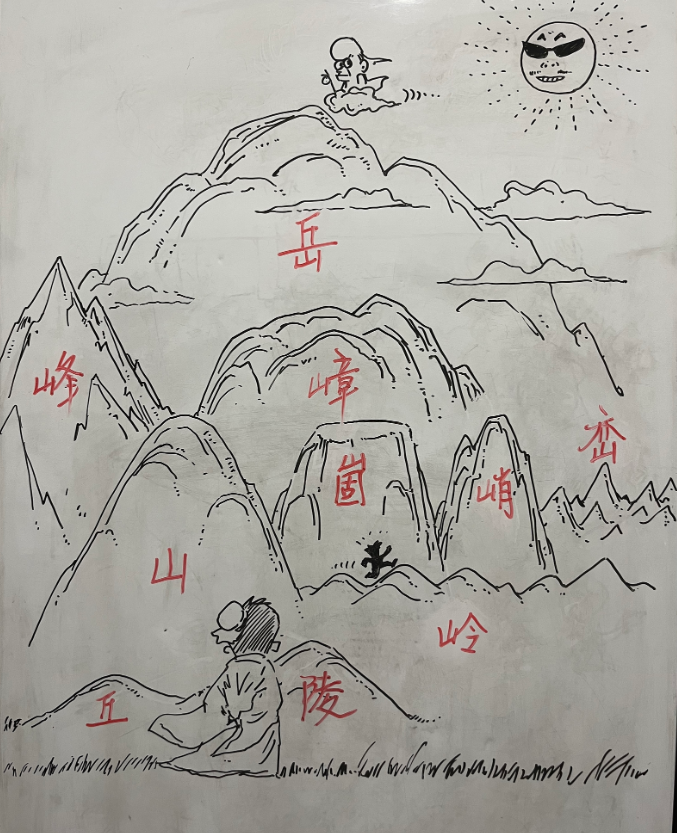 岳
峰
嶂
峦
崮
峭
山
岭
丘
陵